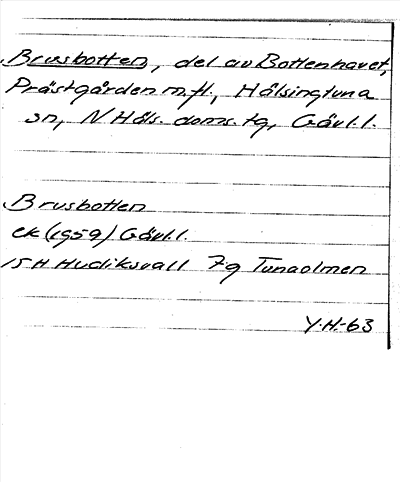 Brusbotten, del av Bottenhavet,
Prästgården m.fl., Hälsingtuna
sn, N Häls. doms. tg, Gävl.l.
Brusbotten
ek (1959) Gävl.l.
15H Hudiksvall 7g Tunaolmen
Y.H.-63